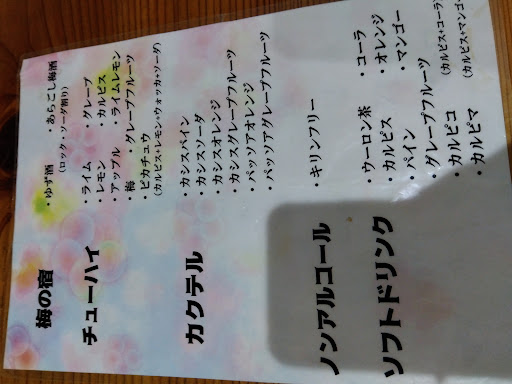 梅の宿
・ゆず酒 ・あらごし梅酒
(ロック・ソーダ割り)
チューハイ
・ライム ・グレープ
・レモン ・カルピス
・アップル ・ライムレモン
・梅 ・グレープフルーツ
・ピカチュウ
(カルピス+レモン+ウォッカ+ソーダ)
カクテル
・カシスパイン
・カシスソーダ
・カシスオレンジ
・カシスグレープフルーツ
・パッソアオレンジ
・パッソアグレープフルーツ
ノンアルコール
・キリンフリー
ソフトドリンク
・ウーロン茶 ・コーラ
・カルピス ・オレンジ
・パイン ・マンゴー
・グレープフルーツ
・カルピコ (カルピス+コーラ)
・カルピマ (カルピス+マンゴ